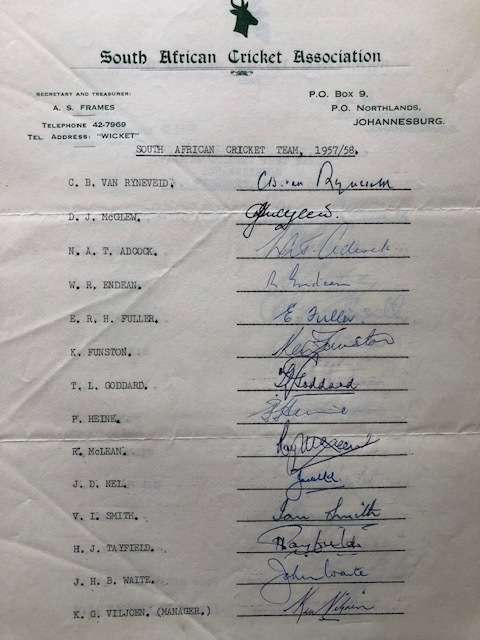 South African Cricket Association
SECRETARY AND TREASURER: P.O. BOX 9,
A. S. FRAMES P.O. NORTHLANDS,
TELEPHONE 42-7969 JOHANNESBURG.
TEL. ADDRESS: "WICKET"
SOUTH AFRICAN CRICKET TEAM, 1957/58.
C. B. VAN RYNEVEID. C B van Ryneveld
D. J. McGLEW. DJ McGlew.
N. A. T. ADCOCK. N.A.T. Adcock
W. R. ENDEAN. R. Endean
E. R. H. FULLER. E. Fuller
K. FUNSTON. Ken Funston
T. L. GODDARD. T L Goddard
P. HEINE. P Heine
R. McLEAN. Roy McLean
J. D. NEL.
V. I. SMITH. Ian Smith
H. J. TAYFIELD. H Tayfield
J. H. B. WAITE. John Waite
K. G. VILJOEN. (MANAGER.) Ken Viljoen